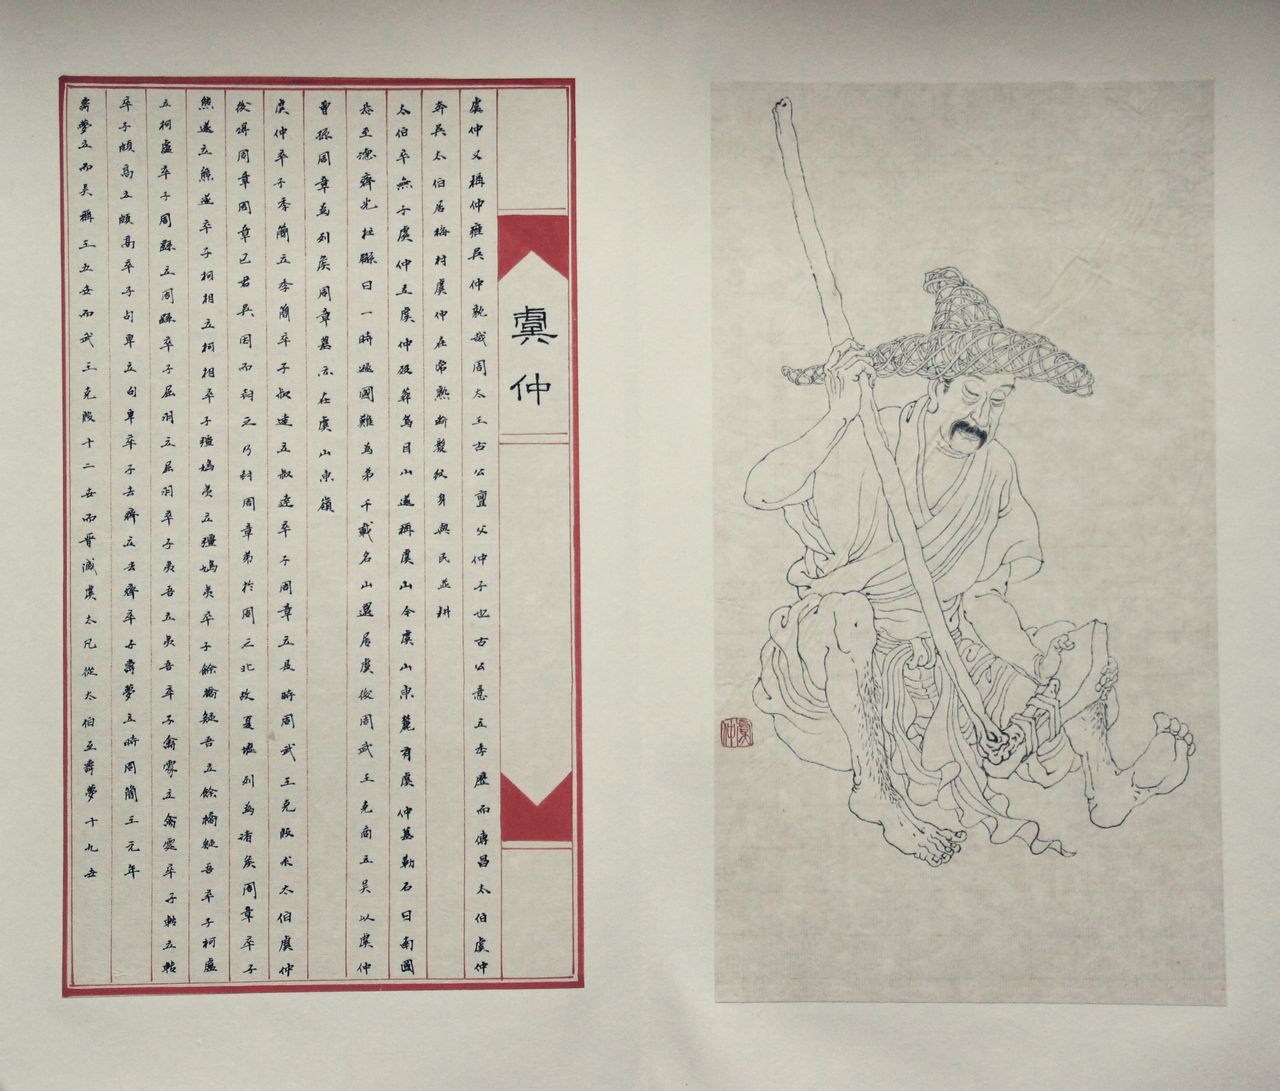 虞仲
虞仲又稱仲雍吳仲孰哉周太王古公亶父仲子也古公意立季歷而傳昌太伯虞仲
奔吳太伯居梅村虞仲在常熟斷髮紋身與民並耕
太伯卒無子虞仲立虞仲歿葬烏目山遂稱虞山今虞山東麓有虞仲墓勒石曰南國
至德齊光柱聯曰一時遜國難為弟千載名山還屬虞後周武王克商立吳以虞仲
曾孫周章為列矦周章墓亦在虞山東嶺
虞仲卒子季簡立季簡卒子叔達立叔達卒子周章立是時周武王克殷求太伯虞仲
後得周章周章已君吳因而封之乃封周章弟於周之北故夏墟列為諸矦周章卒子
熊遂立熊遂卒子柯相立柯相卒子彊鳩夷立彊鳩夷卒子餘橋疑吾立餘橋疑吾卒子柯盧
立柯盧卒子周繇立周繇卒子屈羽立屈羽卒子夷吾立夷吾卒子禽處立禽處卒子轉立轉
卒子頗高立頗高卒子句卑立句卑卒子去齊立去齊卒子壽夢立時周簡王元年
壽夢立而吳稱王五世而武王克殷十二世而晉滅虞大凡從太伯至壽夢十九世
虞仲